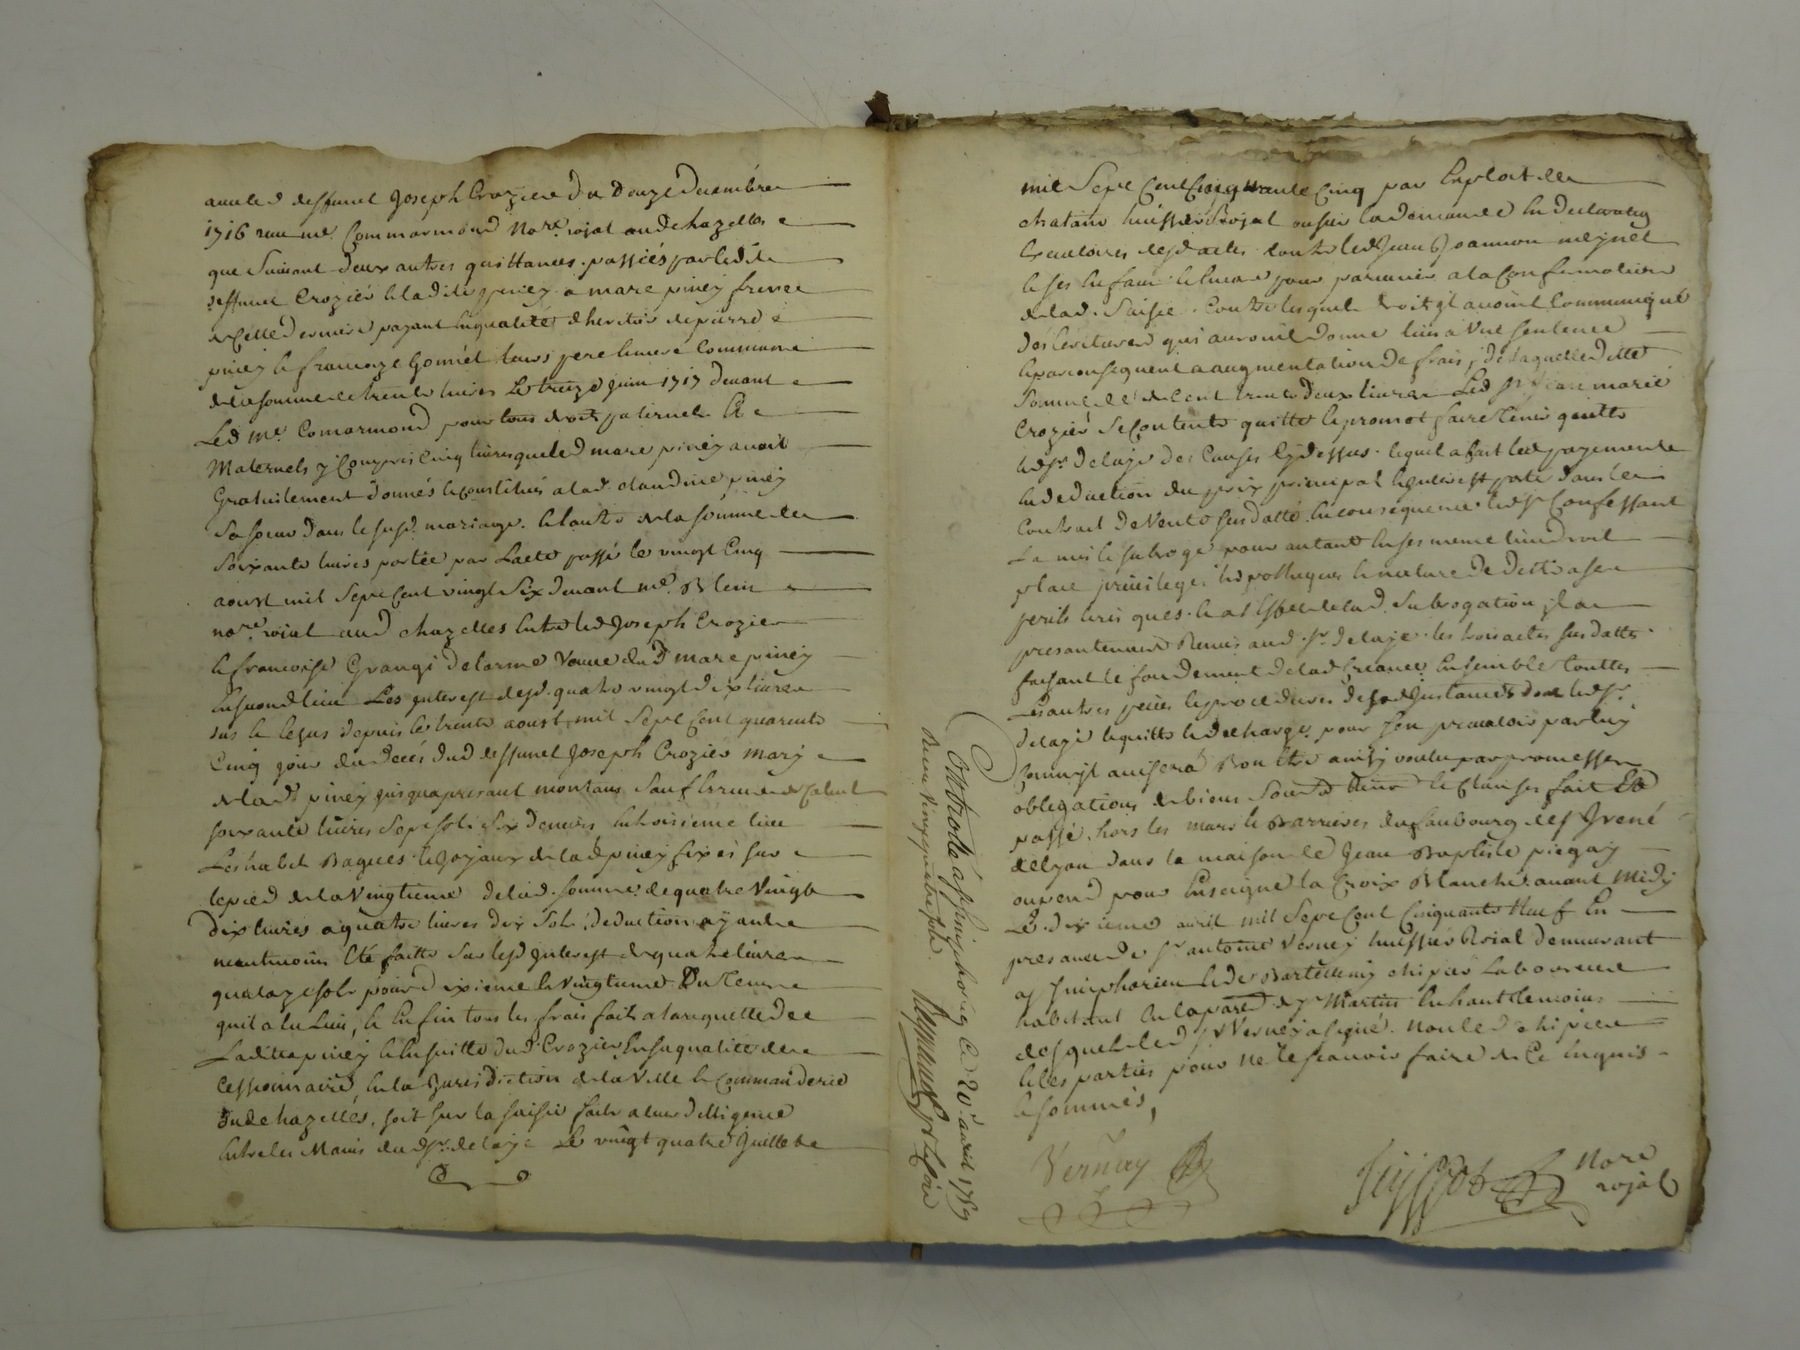 avec led. deffunct Joseph Crozier du Douze Decembre
1716 reçu me. Commarmond No.re roial aud chazelles e
que Suivant deux autres quittances passées par led.
deffunct Crozier & lad. piney a marc piney frere
de cette derniere payant en qualité d'heritier de pierre
piney & francoize Goniet leurs pere & mere Commune
de la somme de trente livres Le treize juin 1717 devant
Led me. Comarmond pour tous droits paternels &
Maternels y Compris Cinq livres que led marc piney avoit
Gratuitement donnés & constitués a lad. claudine piney
Sa soeur dans le susd. mariage. & l'autre de la somme de
Soixante livres portée par L'acte passé le vingt Cinq
aoust mil Sept Cent vingt Six devant me. Blein
no.re roial aud chazelles entre led Joseph Crozier
& francoise Grangi delarme Veuve dud marc piney
En second lieu Les interest desd. quatre vingt dix livres
sus & leguś depuis le trente aoust mil Sept Cent quarente
Cinq jour du deces dud deffunct Joseph Crozier mary
de lad. piney jusqua present montant Sauf Erreur de Calcul
soixante livres Sept sols Six deniers En troisieme lieu
Les habit Bagues & Joyaux de lad piney fixés sur
le pied de la Vingtieme de lad. somme de quatre Vingt
Dix livres a quatre livres dix sols, deduction ayant
neantmoins Eté faitte Sur lesd interest de quatre livres
quatorze sols pour dixieme & Vingtieme Du tems
qu'il a eu Lieu, & Enfin tous les frais faits a la requette de
Laditte piney & Ensuitte dud. Crozier En sa qualité de
Cessionnaire, en la Jurisdiction de la Ville & Commanderie
de chazelles, soit sur la saisie faite a leur dilligence
Entre les Mains du d sr. delaye Le vingt quatre Juillet
mil Sept Cent Cinquante Cinq par Exploit de
chatain huissier Royal ou sur la demande En declaration
Executoires desd actes contre led Jean Joannon meynet
pour parvenir a la Confirmation
de lad. Saisie. Contre lesquels droits il avoient Communiqué
des Ecritures qui auroient donné lieu a Une Sentence
& par consequent a augmentation de frais, de laquelle ditte
Somme de Cent trente deux livres Led Sr. Jean marie
Crozier Se Contente quitte & promet faire tenir quitte
led Sr. delaye des Causes Cy dessus. lequel a fait led payement
En deduction du prix principal & interest porté dans le
Contract de Vente Sus datté. En consequence led Sr Confessant
La mis & subrogé pour autant En ses meme lieu droit
place privileges hipotheques & nature de dette a ses
perils & risques. & a l'effet de lad. Subrogation il a
presentement Remis aud. Sr. delaye les trois actes sus dattés
faisant le fondement de lad Creance Ensemble touttes
Les autres pieces & procedures desd Instances dont led Sr.
delaye le quitte & decharge, pour S'en prevaloir par luy
Comm'il avisera Bon Etre ainsy voulu par promesses
obligations de biens Soumission & Clauses fait Et
passé hors les murs & Barrieres du faubourg de St Irené
de Lyon dans la maison de Jean Baptiste piegay
ou pend pour Enseigne la Croix Blanche avant Midy
Le dixieme avril mil Sept Cent Cinquante Neuf En
presence de Sr antoine Verney huissier Roial demeurant
a St Simphorien & de Bartélemy chipier Laboureur
habitant En la parr. de St Martin En haut temoins
desquels led Sr Verney a signé. non led chipier
& les parties pour ne le sçavoir faire de Ce enquis
& sommés,
Vernay
Nore
royal
Controllé a St Simphorien Ce 20 avril 1759
Reçu Vingt quatre sols